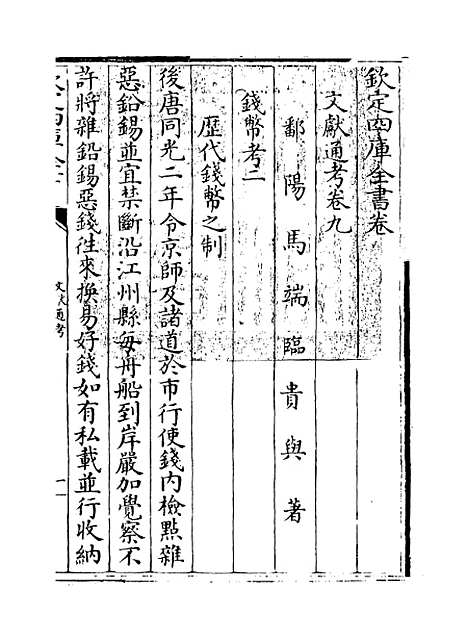 欽定四庫全書卷
文獻通考卷九
鄱陽馬端臨貴與著
錢幣考二
歷代錢幣之制
後唐同光二年令京師及諸道於市行使錢內檢點雜
惡鉛錫並宜禁斷沿江州縣每舟船到岸嚴加覺察不
許將雜鉛錫惡錢往來換易好錢如有私載並行收納
文獻通考